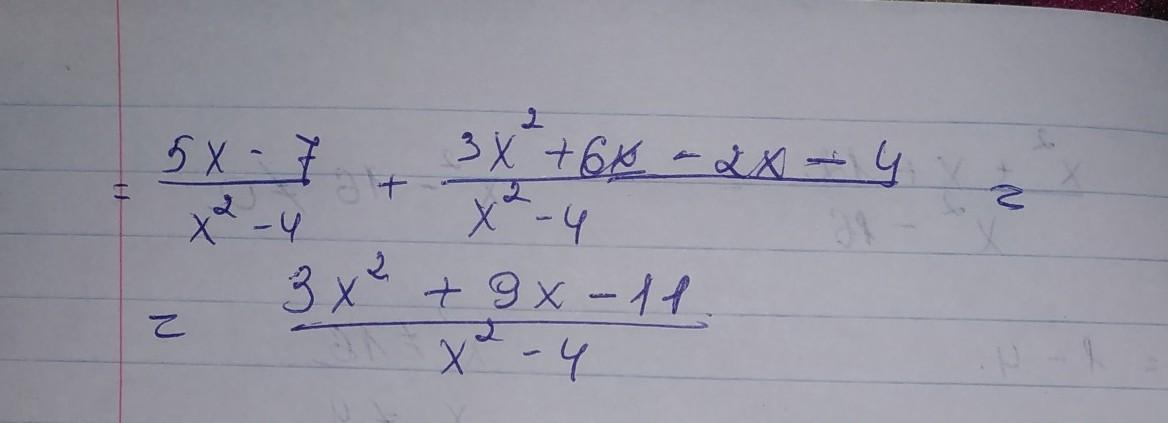 = (5x - 7)/(x² - 4) + (3x² + 6x - 2x - 4)/(x² - 4) =
= (3x² + 9x - 11)/(x² - 4)